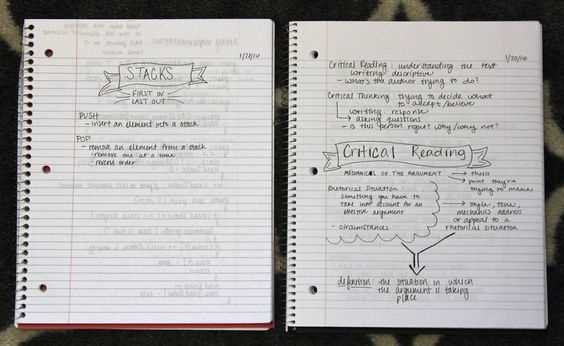 1/28/10
STACKS
FIRST IN
LAST OUT
PUSH:
- insert an element into a stack
POP:
- remove an element from a stack
- remove one at a time
- order
1/20/10
Critical Reading: understanding the text
writing descriptive
- what's the author trying to do?
Critical Thinking trying to decide what
to accept/believe
writing response
asking questions
- is this person right? why/why not?
Critical Reading
MECHANICS OF THE ARGUMENT → thesis
point they're
trying to make
Rhetorical Situation
something you have to
take into account for an
effective argument
- circumstances
→ style, tone,
mechanics address
or appeal to a
rhetorical situation
definition: the situation in which
the argument is taking
place